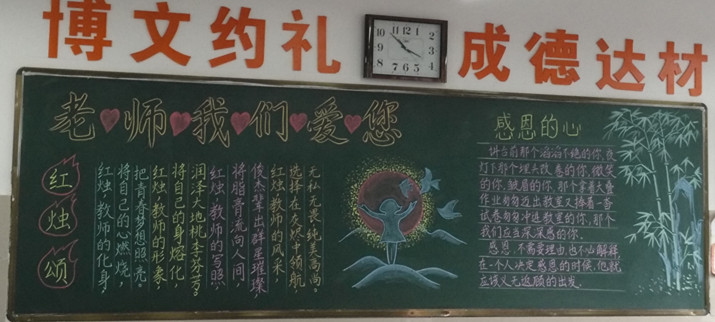 博文约礼
成德达材
12 1 2 3 4 5 6 7 8 9 10 11
老师我们爱您
红烛颂
红烛，教师的化身，
将自己的心燃烧，
把青春梦想照亮。
红烛，教师的形象，
将自己的身熔化，
润泽大地桃李芬芳。
红烛，教师的写照，
将脂膏流向人间，
俊杰辈出群星璀璨，
红烛教师的风采，
选择在炎炎中领航
无私无畏，纯美高尚。
感恩的心
讲台前那个滔滔不绝的你，夜
灯下那个埋头改卷的你，微笑
的你，皱眉的你，那个拿着大叠
作业匆匆迈出教室又捧着一沓
试卷匆匆冲进教室的你，那个
我们应当深深感的你。
感恩，不需要理由，也不必解释
在一个人决定感恩的时候，他就
应该义无返顾的出发。